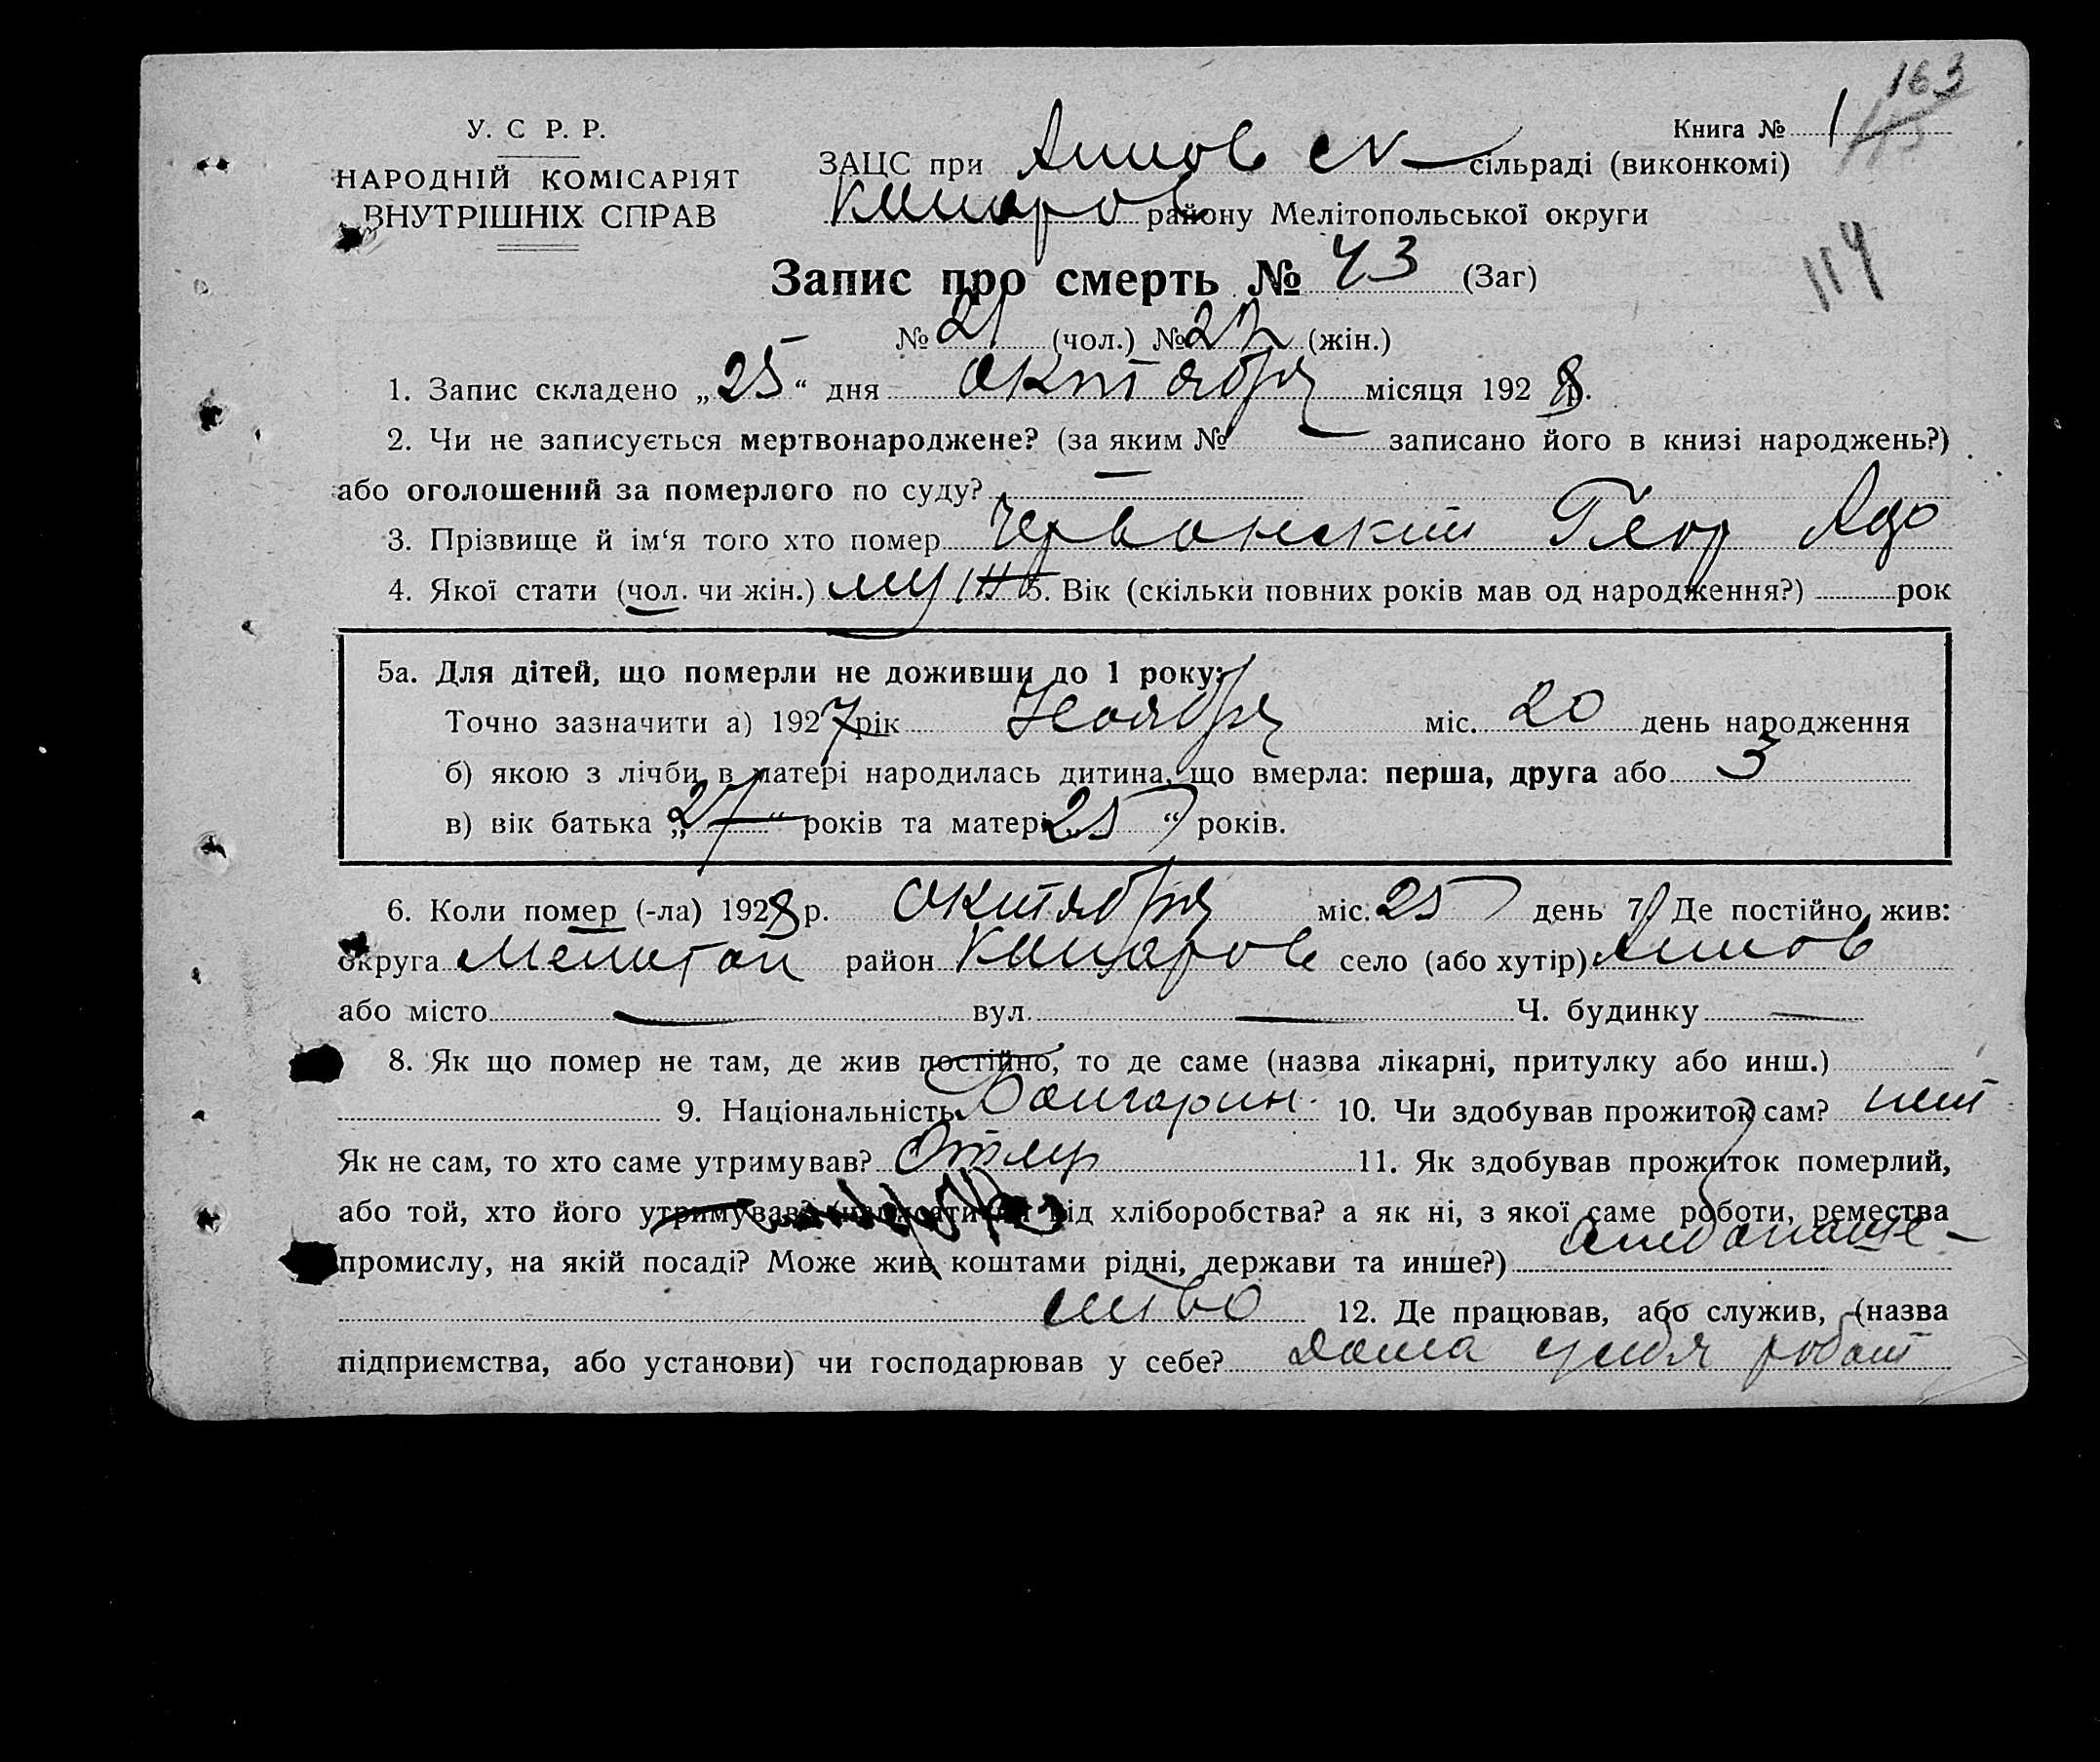 163
У. С Р. Р.
Книга № 1
НАРОДНІЙ КОМІСАРІЯТ
ВНУТРІШНІХ СПРАВ
ЗАЦС при сільраді (виконкомі)
району Мелітопольської округи
114
Запис про смерть № 43 (Заг)
№ 21 (чол.) № 22 (жін.)
1. Запис складено „25“ дня октября місяця 1928 р.
2. Чи не записується мертвонароджене? (за яким № — записано його в книзі народжень?)
або оголошений за померлого по суду? —
3. Прізвище й ім‘я того хто помер Червонский Геор
4. Якої стати (чол. чи жін.) муж 5. Вік (скільки повних років мав од народження?) рок
5а. Для дітей, що померли не доживши до 1 року:
Точно зазначити а) 1927 рік Ноября міс. 20 день народження
б) якою з лічби в матері народилась дитина, що вмерла: перша, друга або 3
в) вік батька „27“ років та матері „25“ років.
6. Коли помер (-ла) 1928 р. октября міс. 25 день 7. Де постійно жив:
округа Мелитоп район село (або хутір)
або місто — вул. — Ч. будинку —
8. Як що помер не там, де жив постійно, то де саме (назва лікарні, притулку або инш.)
9. Національність Болгарин. 10. Чи здобував прожиток сам? нет
Як не сам, то хто саме утримував? Отец 11. Як здобував прожиток померлий,
або той, хто його утримував? (написати чи від хліборобства? а як ні, з якої саме роботи, ремества
промислу, на якій посаді? Може жив коштами рідні, держави та инше?) хлебопаше-
ство 12. Де працював, або служив, (назва
підприємства, або установи) чи господарював у себе? дома у себя работ